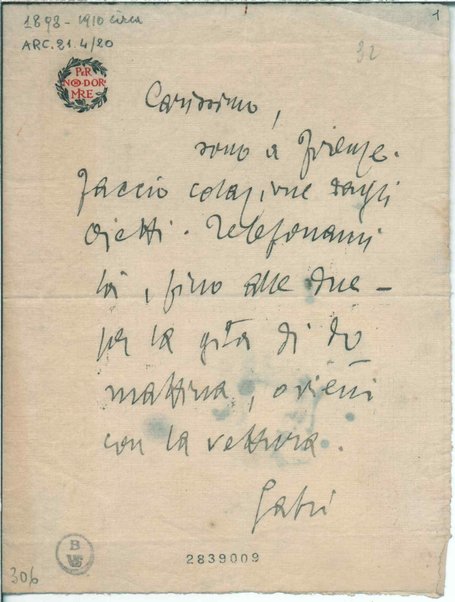 1898-1910 circa
1
ARC.21.4/20
32
PER
NON DOR
MIRE
Carissimo,
sono a Firenze.
Faccio colazione dagli
Ojetti. Telefonami
là, fino alle due –
per la gita di do
mattina, o vieni
con la vettura.
Gabri
B
2839009
306